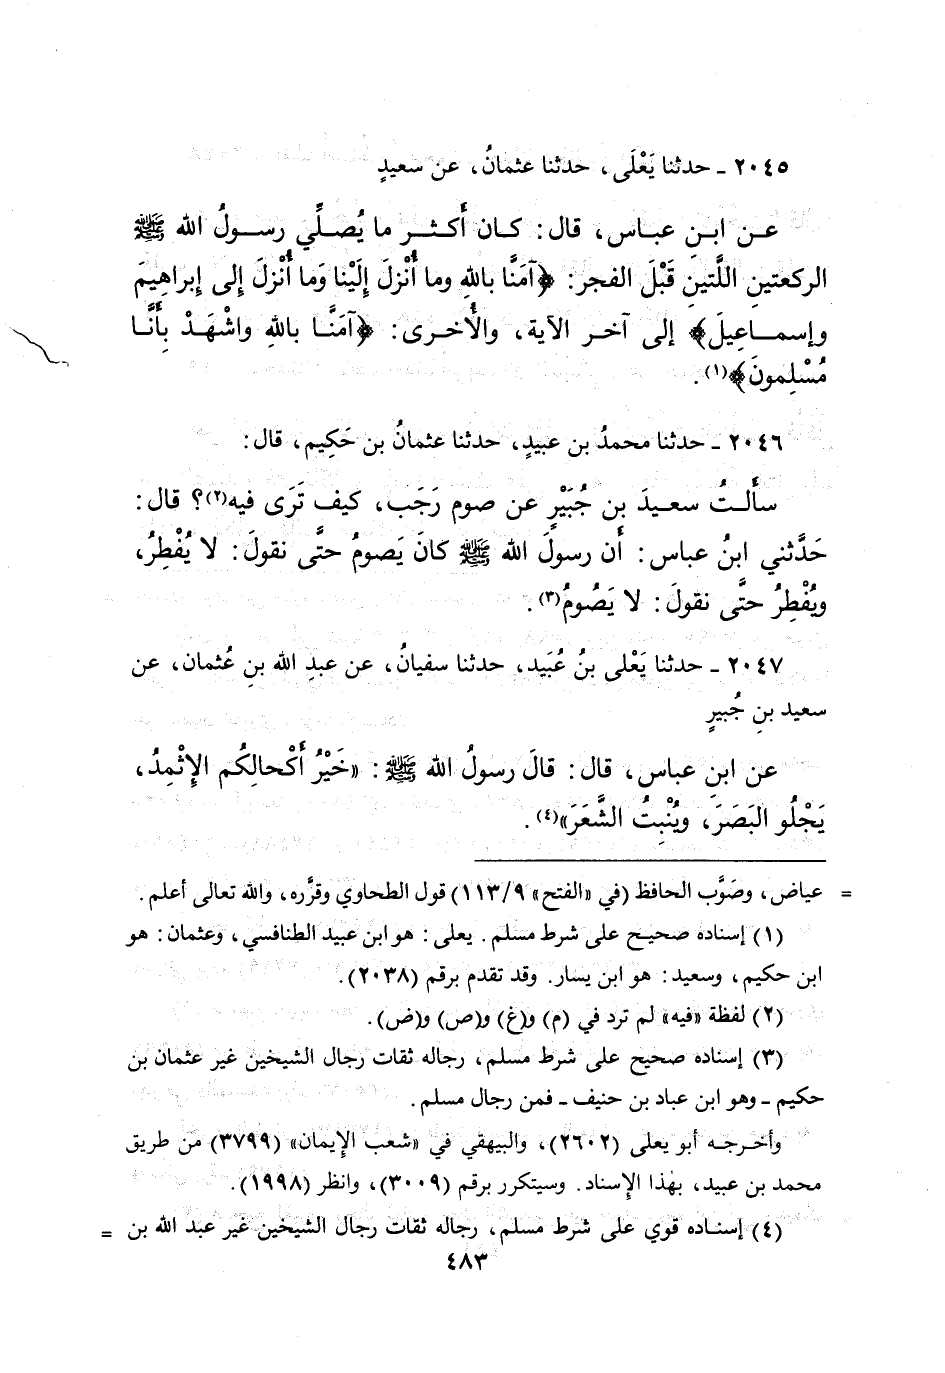 ٢٠٤٥ ـ حدثنا يَعْلَى، حدثنا عثمانُ، عن سعيدٍ
عـن ابـنِ عبـاس، قال: كـان أَكثـر ما يُصـلِّي رسـولُ الله ﷺ
الركعتينِ اللَّتينِ قَبْلَ الفجر: ﴿آمَنَّا باللهِ وما أُنْزِلَ إِلَيْنا وَما أُنْزِلَ إلى إبراهِيمَ
وإسمـاعِيلَ﴾ إلى آخر الآية، والأُخرى: ﴿آمَنَّا باللهِ واشْهَدْ بِأَنَّا
مُسْلِمونَ﴾(١).
٢٠٤٦ ـ حدثنا محمدُ بن عبيدٍ، حدثنا عثمانُ بن حَكِيم، قال:
سأَلـتُ سعيـدَ بن جُبَيْرٍ عن صوم رَجَب، كيف تَرَى فيه(٢)؟ قال:
حَدَّثني ابنُ عباس: أَن رسولَ الله ﷺ كانَ يَصومُ حتَّى نقولَ: لا يُفْطِرُ،
ويُفْطِرُ حتَّى نقولَ: لا يَصُومُ(٣).
٢٠٤٧ ـ حدثنا يَعْلى بنُ عُبَيد، حدثنا سفيانُ، عن عبدِ الله بنِ عُثمان، عن
سعيد بنِ جُبيرٍ
عن ابنِ عباس، قال: قالَ رسولُ الله ﷺ: «خَيْرُ أَكْحالِكُم الإِثْمِدُ،
يَجْلُو البَصَرَ، ويُنْبِتُ الشَّعَرَ»(٤).
= عياض، وصَوَّب الحافظ (في «الفتح» ١١٣/٩) قول الطحاوي وقرَّره، والله تعالى أعلم.
(١) إسناده صحيح على شرط مسلم. يعلى: هو ابن عبيد الطنافسي، وعثمان: هو
ابن حكيم، وسعيد: هو ابن يسار. وقد تقدم برقم (٢٠٣٨).
(٢) لفظة «فيه» لم ترد في (م) و(غ) و(ص) و(ض).
(٣) إسناده صحيح على شرط مسلم، رجاله ثقات رجال الشيخين غير عثمان بن
حكيم ـ وهو ابن عباد بن حنيف ـ فمن رجال مسلم.
وأخرجه أبو يعلى (٢٦٠٢)، والبيهقي في «شعب الإيمان» (٣٧٩٩) من طريق
محمد بن عبيد، بهذا الإسناد. وسيتكرر برقم (٣٠٠٩)، وانظر (١٩٩٨).
(٤) إسناده قوي على شرط مسلم، رجاله ثقات رجال الشيخين غير عبد الله بن =
٤٨٣